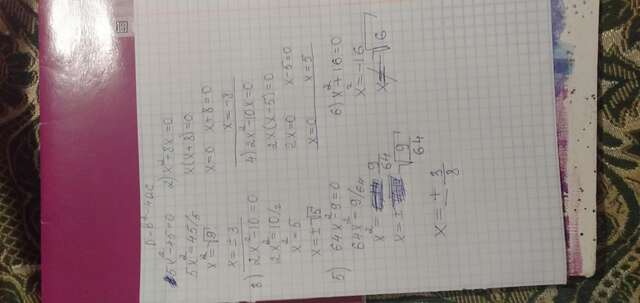 D=b²-4ac
5x²-45=0
5x²=45/5
x²=√9
x=±3
2) x²+8x=0
x(x+8)=0
x=0 x+8=0
x=-8
3) 2x²-10=0
2x²=10/2
x²=5
x=±√5
4) 2x²-10x=0
2x(x-5)=0
2x=0 x-5=0
x=0 x=5
5) 64x²-9=0
64x²=9/64
x²=9/64
x=±√9/64
x=±3/8
6) x²+16=0
x²=-16